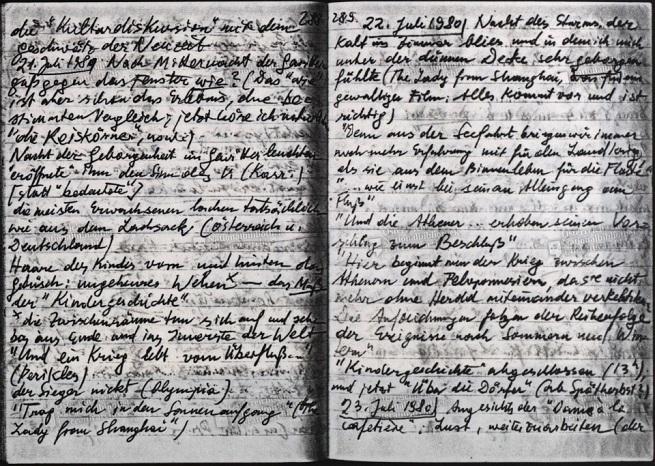 die "Kulturdiskussion" mit dem
Geschwätz der Neuzeit
21. Juli 1980 Nach Mitternacht der
gegen das Fenster wie? (Das "wie"
ist aber schon das Erlebnis, ohne be-
stimmten Vergleich; jetzt höre ich
"die Reiskörner",
Nacht der Geborgenheit im
"eröffnete" ihm den Sinn des
[statt "bedeutete"]
die meisten Erwachsenen lachen tatsächlich
wie aus dem Lachsack (Österreich u.
Deutschland)
Haare des Kindes vorn und hinten
ungeheures Wehen x — das
der "Kindergeschichte"
x die Zwischenräume tun sich auf und
bis ans Ende und ins Innerste der Welt
"Und ein Krieg lebt vom Überfluß..."
(Perikles)
der Sieger nickt (Olympia)
"Trag mich in den Sonnenaufgang" (The
Lady from Shanghai")
285 22. Juli 1980 Nacht des Sturms, der
kalt ins Zimmer blies und in dem ich mich
unter der dünnen Decke sehr geborgen
fühlte (The Lady from Shanghai,
gewaltiger Film: Alles kommt vor und ist
richtig)
"Denn aus der Seefahrt bringen wir immer
noch mehr Erfahrung mit für den Landkrieg
als sie aus dem Binnenleben für die Flotte"
"... wie einst bei seinem Alleingang am
Fluß"
"Und die Athener... erhoben seinen Vor-
schlag zum Beschluß"
"Hier beginnt nun der Krieg zwischen
Athenern und Peloponnesiern, da sie nicht
mehr ohne Herold miteinander verkehrten
Die Aufzeichnungen folgen der Reihenfolge
der Ereignisse nach Sommern und Win-
tern"
"Kindergeschichte" abgeschlossen
und jetzt "Über die Dörfer" (ab Spätherbst?)
23. Juli 1980 Angesichts der "Dame à la
cafetière": Lust, weiterzuarbeiten (der